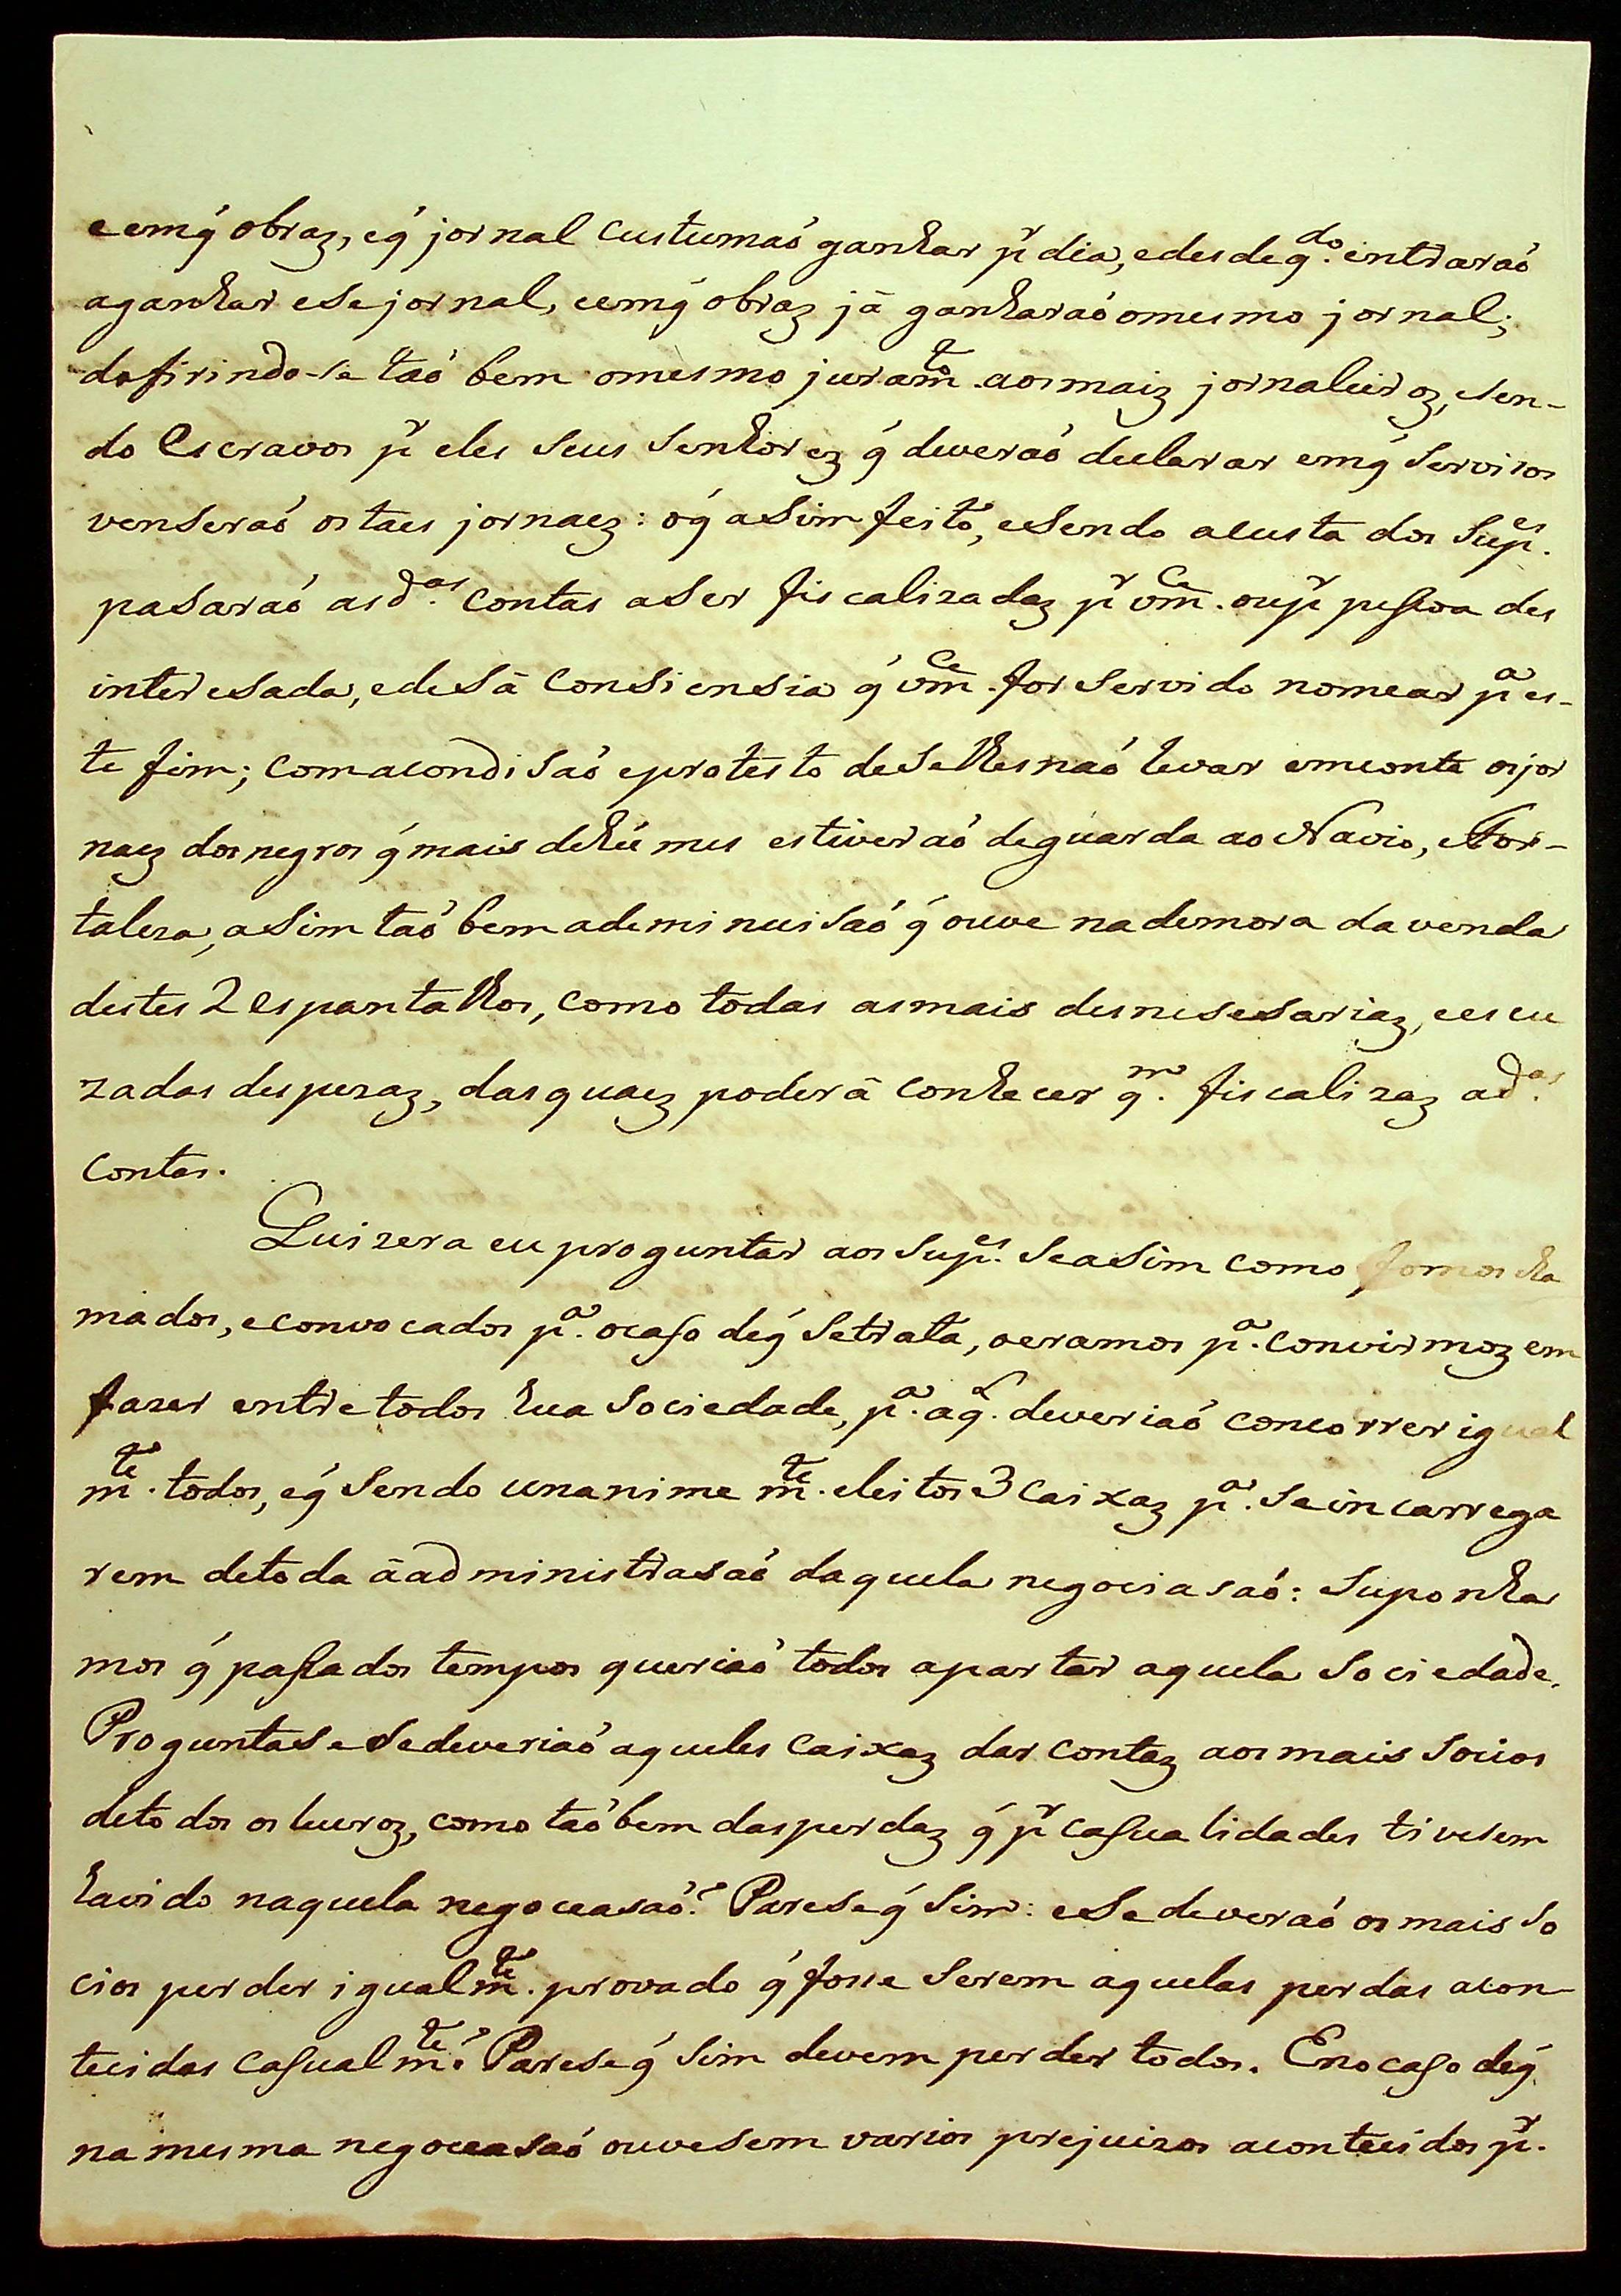 e emq̃ obraz, eq̃ jornal custumaõ ganhar pʳ dia, edesdeq.ᵈᵒ entraraõ
aganhar esejornal, eemq̃ obraz já ganharaõ omesmo jornal;
dofirindo-se taõ bem omesmo juramᵗᵒ. aosmaiz jornaleiroz, sen-
do Escravos pʳ eles seus Senhorez q̃ deveraõ declarar emq̃ Servisos
venseraõ os taes jornaez: oq̃ aSim feito, eSendo acusta dos Supᵉˢ.
paSaraõ asd.ᵃˢ Contas aSer fiscalizadaz pʳ vmᶜᵉ. oupʳ peſsoa des
interesada, edeSã ConSiensia q̃ vmᶜᵉ. for Servido nomear pᵃ es-
te fim; comacondisaõ eprotesto deSelhesnaõ levar emconta osjor
naez dosnegros q̃ mais dehũ mes estiveraõ deguarda ao Navio, eFor-
taleza, aSim taõ bem ademinuisaõ q̃ ouve nademora davenda
destes 2 Espantalhos, como todas asmais desnesesariaz, eescu
zadas despezaz, dasquaez poderá conhecer q.ᵐ fiscalizaz ad.ᵃˢ
Contas.
Quizera eu proguntar aos Supᵉˢ. SeaSim como fomos cha
mados, econvocados pᵃ. ocaſo deq̃ Setrata, oeramos pᵃ. convirmoz em
fazer entretodos hua Sociedade, pᵃ. aq.ˡ deveriaõ concorrer igual
mᵗᵉ. todos, eq̃ Sendo unanime mᵗᵉ. eleitos 3 Caixaz pᵃ. Seincarrega
rem detoda áadministrasaõ daquela negociasaõ: Suponha
mos q̃ paſsados tempos queriaõ todos apartar aquela Sociedade.
ProguntaSe Sedeveriaõ aqueles Caixaz dar contaz aosmais Socios
detodos os lucroz, como taõbem dasperdaz q̃ pʳ caſualidades tivesem
havido naquela negoceasaõ? PareSeq̃ Sim: eSe deveraõ osmais So
cios perder igualmᵗᵉ. provado q̃ fose Serem aquelas perdas acon-
tecidas caſualmᵗᵉ? PareSeq̃ Sim devem perder todos. Enocaſo deq̃
na mesma negoceasaõ ouveSem varios prejuizos acontecidos pʳ.